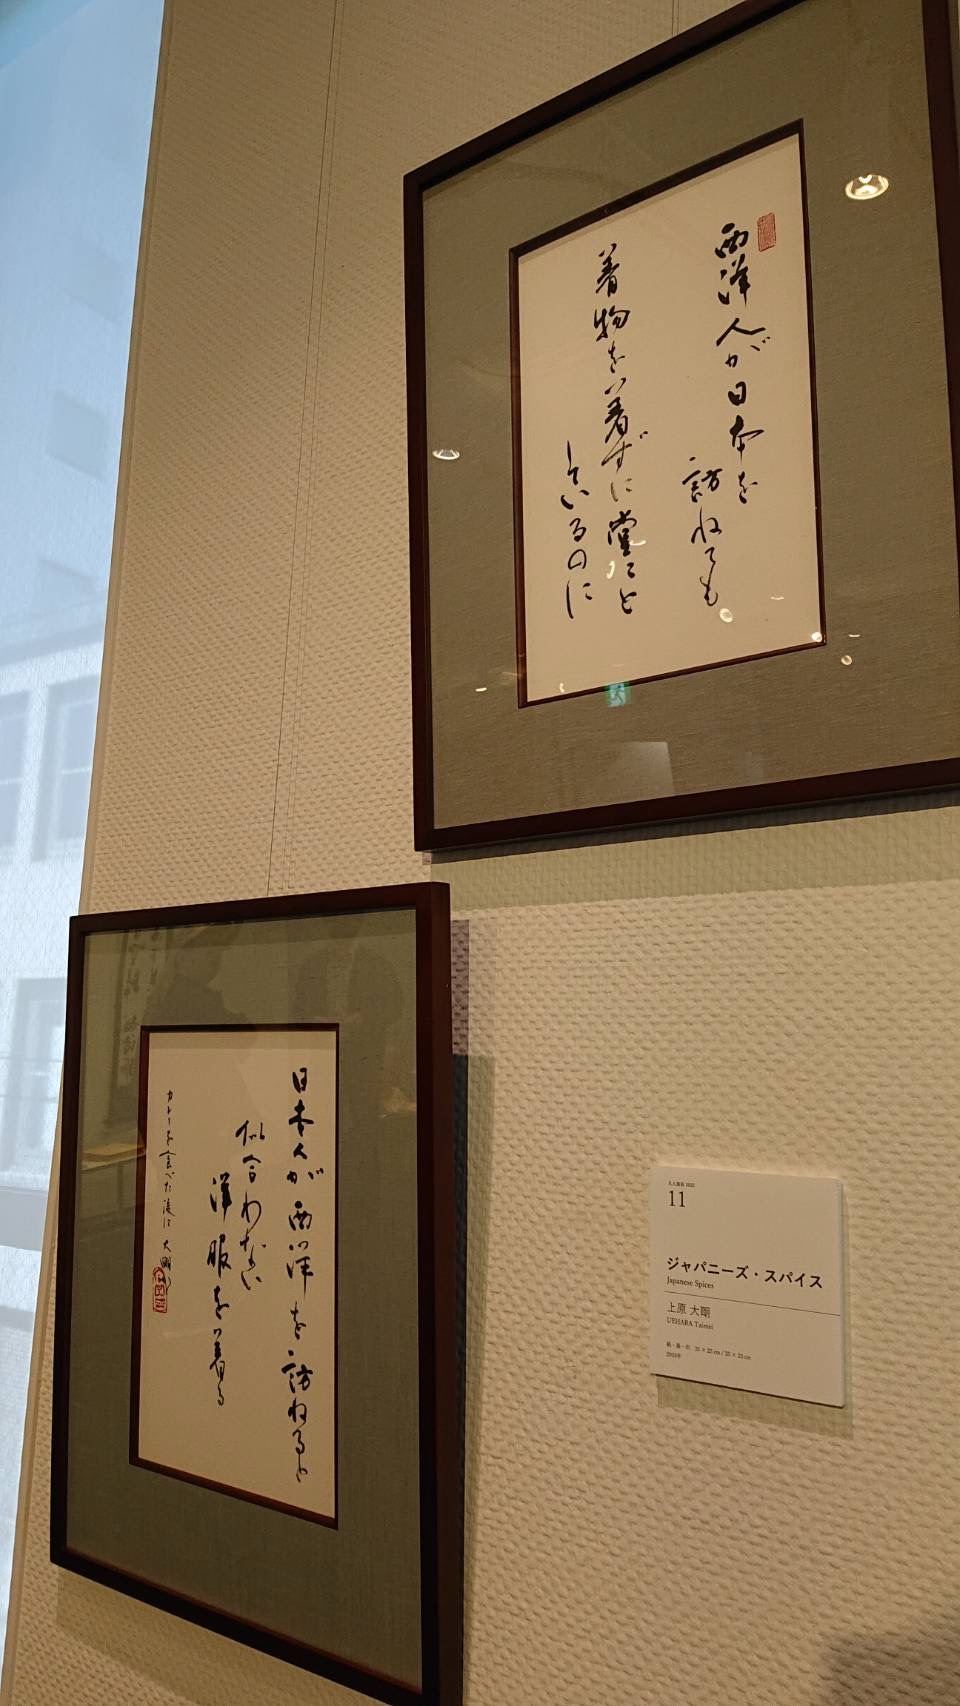 西洋人が日本を
訪ねても
着物を着ずに堂々と
しているのに
日本人が西洋を訪ねると
似合わない
洋服を着る
カレーを食べた後に 大剛
11
ジャパニーズ・スパイス
Japanese Spices
上原 大剛
UEHARA